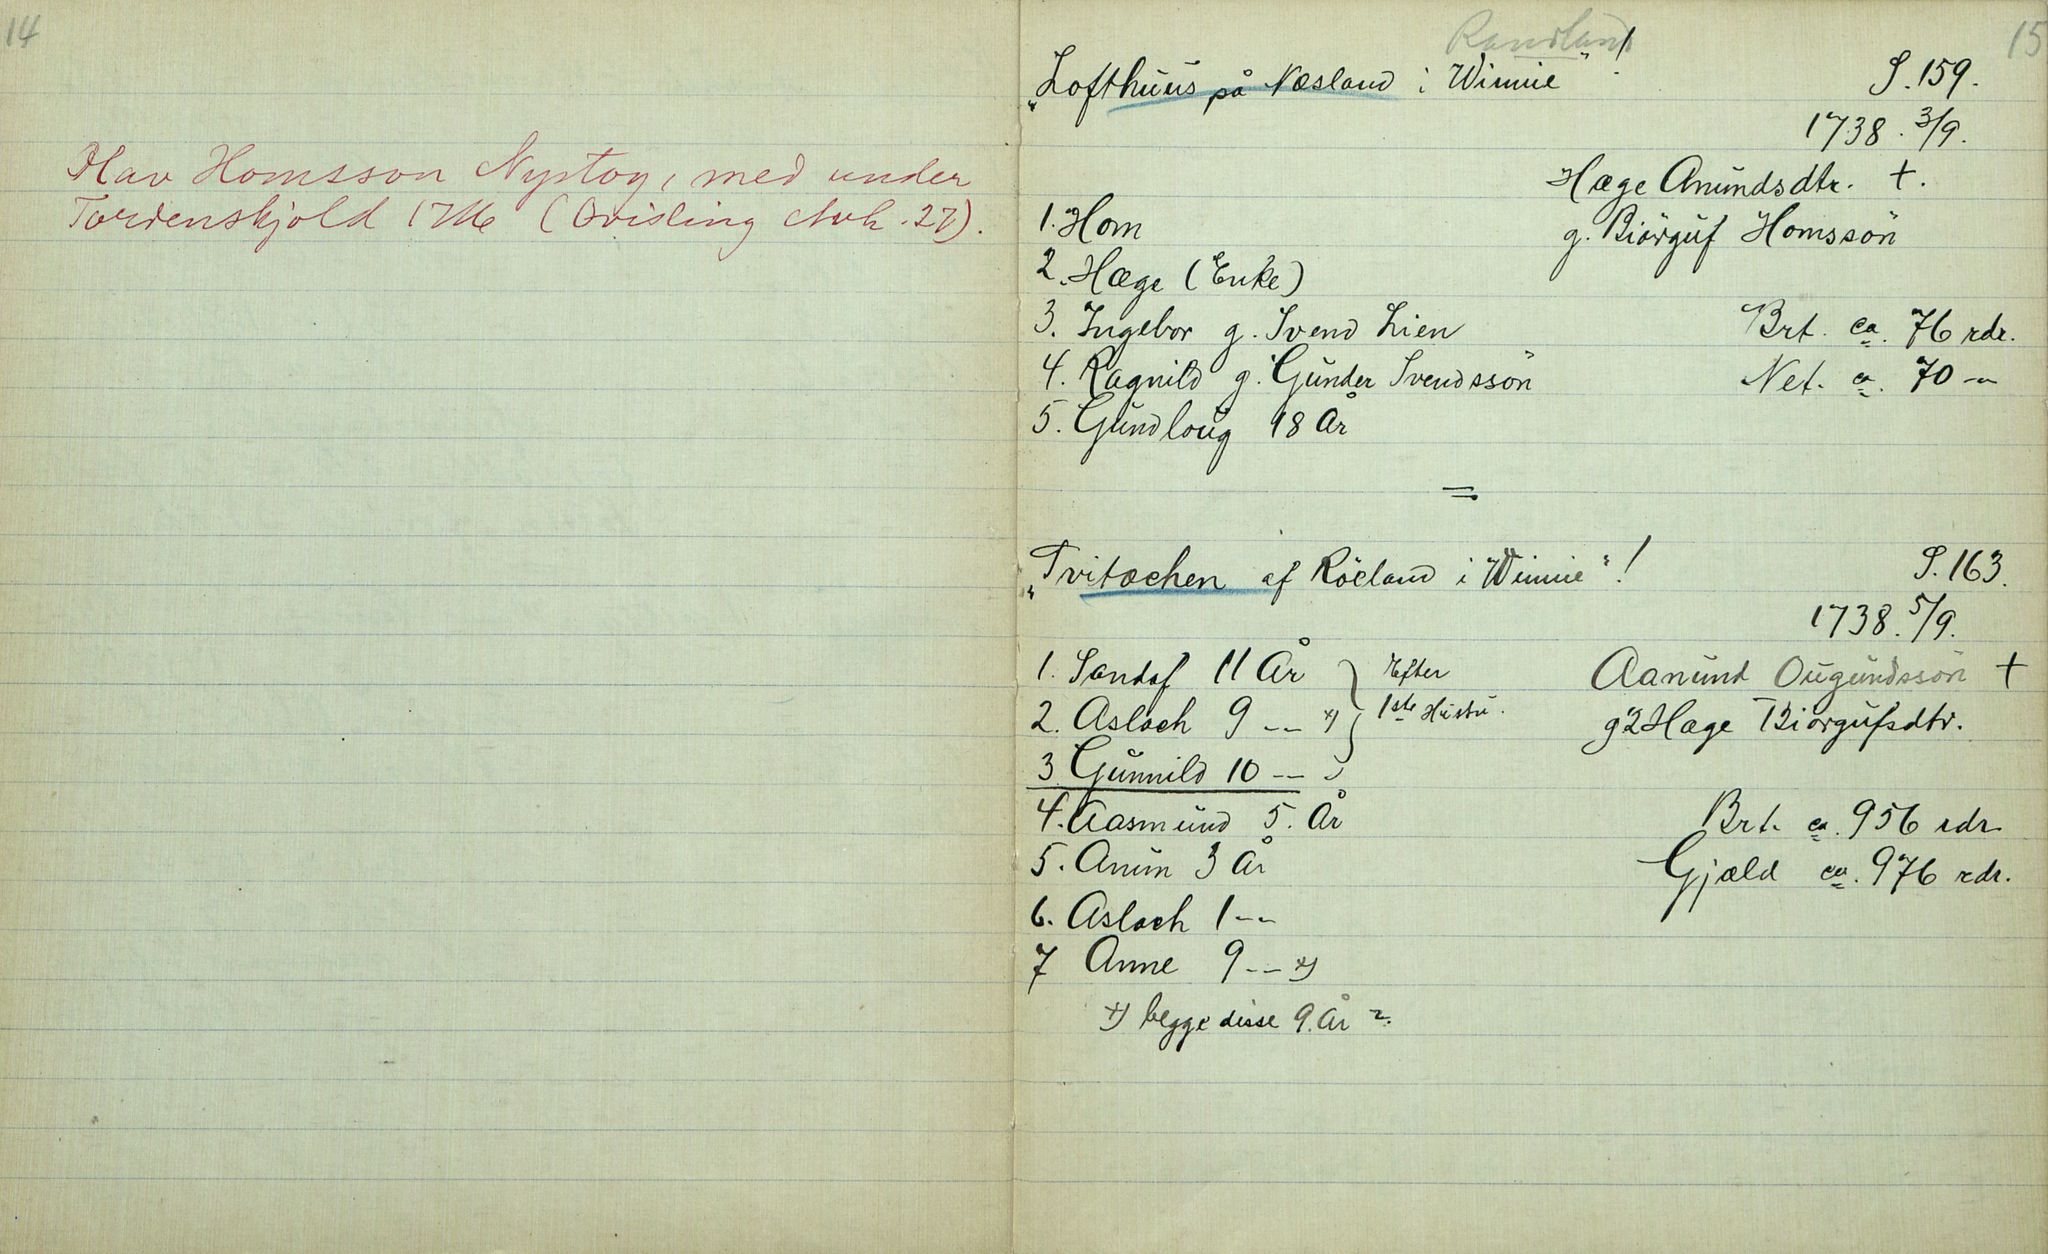 14
Olav Homsson Nystog, med under
Tordenskjold 1716 (Qvisling Avh. 27).
15
Randland
"Lofthuus på Næsland i Winnie" !
S. 159.
1738. 3/9.
Hæge Anundsdtr. +.
g. Biørguf Homssøn
1. Hom
2. Hæge (Enke)
3. Ingebor g. Svend Lien
Brt. ca. 76 rdr.
4. Ragnild g. Gunder Svendssøn
Net. ca. 70 —
5. Gundloug 18 År
=
"Tvitæchen af Röeland i Winnie" !
S. 163.
1738. 5/9.
1. Sandof 11 År
Efter
Aanund Ougundssøn +
2. Asloch 9 -- x)
1ste Hustru.
g2 Hæge Biørgufsdtr.
3 Gunnild 10 --
4. Aasmund 5. År
Brt. ca. 956 rdr
5. Anun 3 År
Gjæld ca. 976 rdr.
6. Asloch 1 --
7 Anne 9 -- x)
x) begge disse 9. År ?.